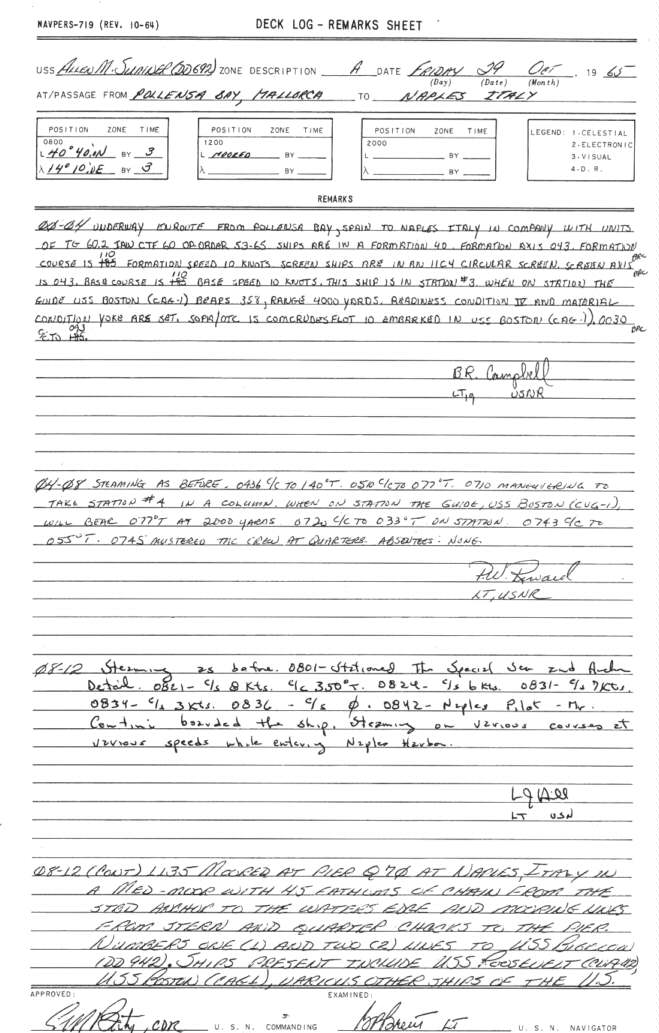 NAVPERS-719 (REV. 10-64)
DECK LOG – REMARKS SHEET
USS ALLEN M. SUMNER (DD692) ZONE DESCRIPTION A DATE FRIDAY 29 OCT, 19 65
(Day) (Date) (Month)
AT/PASSAGE FROM POLLENSA BAY, MALLORCA TO NAPLES ITALY
POSITION ZONE TIME
0800
L 40° 40.0N BY 3
λ 14° 10.0E BY 3
POSITION ZONE TIME
1200
L MOORED BY
λ BY
POSITION ZONE TIME
2000
L BY
λ BY
LEGEND: 1-CELESTIAL
2-ELECTRONIC
3-VISUAL
4-D. R.
REMARKS
00-04 UNDERWAY ENROUTE FROM POLLENSA BAY, SPAIN TO NAPLES ITALY IN COMPANY WITH UNITS
OF TG 60.2 IAW CTF 60 OP-ORDER 53-65 SHIPS ARE IN A FORMATION 40. FORMATION AXIS 043. FORMATION
COURSE IS 110 FORMATION SPEED 10 KNOTS. SCREEN SHIPS ARE IN AN 11C4 CIRCULAR SCREEN. SCREEN AXIS
IS 043. BASE COURSE IS 110 BASE SPEED 10 KNOTS. THIS SHIP IS IN STATION #3. WHEN ON STATION THE
GUIDE USS BOSTON (CAG-1) BEARS 358, RANGE 4000 YARDS. READINESS CONDITION IV AND MATERIAL
CONDITION YOKE ARE SET. SOPA/OTC IS COMCRUDESFLOT 10 EMBARKED IN USS BOSTON (CAG-1). 0030
C/C TO 093
B.R. Campbell
LTJG USNR
04-08 STEAMING AS BEFORE. 0436 C/C TO 140°T. 0510 C/C TO 077°T. 0710 MANEUVERING TO
TAKE STATION #4 IN A COLUMN. WHEN ON STATION THE GUIDE, USS BOSTON (CVG-1),
WILL BEAR 077°T AT 2000 YARDS. 0720 C/C TO 033°T ON STATION. 0743 C/C TO
055°T. 0745 MUSTERED THE CREW AT QUARTERS. ABSENTEES: NONE.
LT, USNR
08-12 Steaming as before. 0801- Stationed The Special Sea and Anchor
Detail. 0821- C/S 8 Kts. C/C 350°T. 0824- C/S 6 kts. 0831- C/S 7 Kts.
0834- C/S 3 Kts. 0836 - C/S 0. 0842- Naples Pilot - Mr.
Contini boarded the ship. Steaming on various courses at
various speeds while entering Naples Harbor.
LJ Hill
LT USN
08-12 (CONT) 1135 MOORED AT PIER Q70 AT NAPLES, ITALY IN
A MED-MOOR WITH 45 FATHOMS OF CHAIN FROM THE
STBD ANCHOR TO THE WATERS EDGE AND MOORING LINES
FROM STERN AND QUARTER CHOCKS TO THE PIER
NUMBERS ONE (1) AND TWO (2) LINES TO USS BIGELOW
(DD 942). SHIPS PRESENT INCLUDE USS ROOSEVELT (CVA-42),
USS BOSTON (CAG1), VARIOUS OTHER SHIPS OF THE U.S.
APPROVED:
EXAMINED:
CDR U. S. N. COMMANDING
LT U. S. N. NAVIGATOR